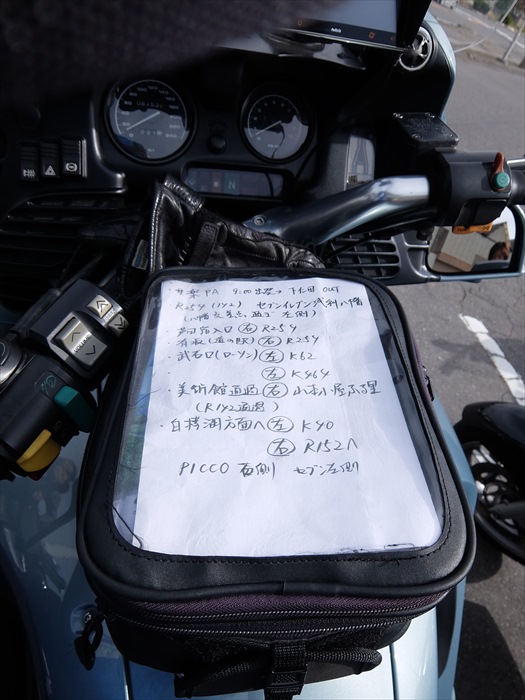 ・甘楽PA 9:00出発→下仁田OUT
R254(142) セブンイレブン浅科八幡
(八幡交差点、過ぎ左側)
・芦田宿入口 (右) R254
・有坂(道の駅) (右) R254
・武石口(ローソン) (左) K62
・ (左) K464
・美術館直進 (右) 山本小屋ふる里
(R142直進)
・白樺湖方面へ (左) K40
(右) R152へ
PICCO 右側 セブン左側
N